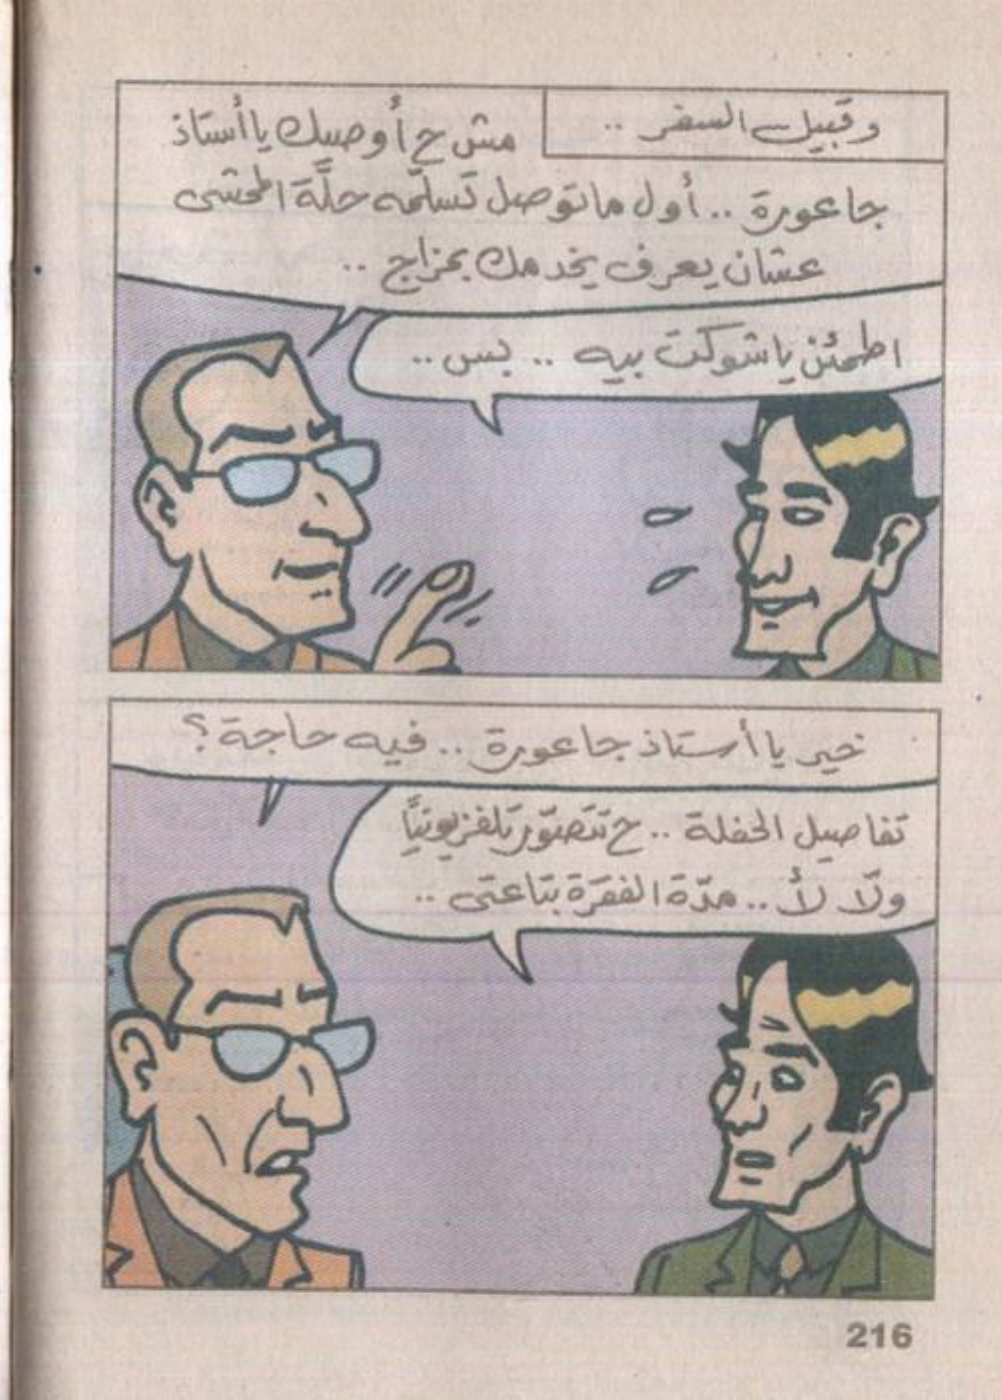 وقبيل السفر ..
مش ح أوصيك يا أستاذ
جاعورة .. أول ما توصل تسلّمه حلّة المحشى
عشان يعرف يخدمك بمزاج ..
اطمئن يا شوكت بيه .. بس ..
خير يا أستاذ جاعورة .. فيه حاجة ؟
تفاصيل الحفلة .. ح تتصوّر تلفزيونيًا
ولّا لأ .. مدّة الفقرة بتاعتى ..
216